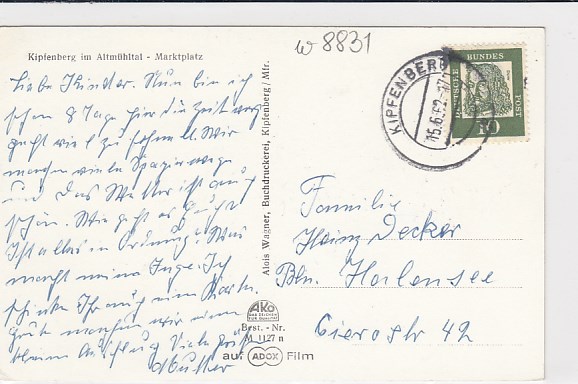 w 8831
Kipfenberg im Altmühltal - Marktplatz
Liebe Kinder. Nun bin ich
schon 8 Tage hier die Zeit verg
geht viel zu schnell. Wir
machen viele Spazierwege
und das Wetter ist auch
schön. Wie geht es Euch?
Ist alles in Ordnung? Was
macht meine Inge. Ich
schicke Ihr auch eine Karte.
Heute machen wir einen
kleinen Ausflug. Viele Grüße
Mutter
Alois Wagner, Buchdruckerei, Kipfenberg/Mfr.
AKO
DAS ZEICHEN
FÜR QUALITÄT
Best.-Nr.
M 1127 n
auf ADOX Film
KIPFENBERG
15.6.62
DEUTSCHE BUNDESPOST
10
Familie
Heinz Decker
Bln. Halensee
Cicerostr 42